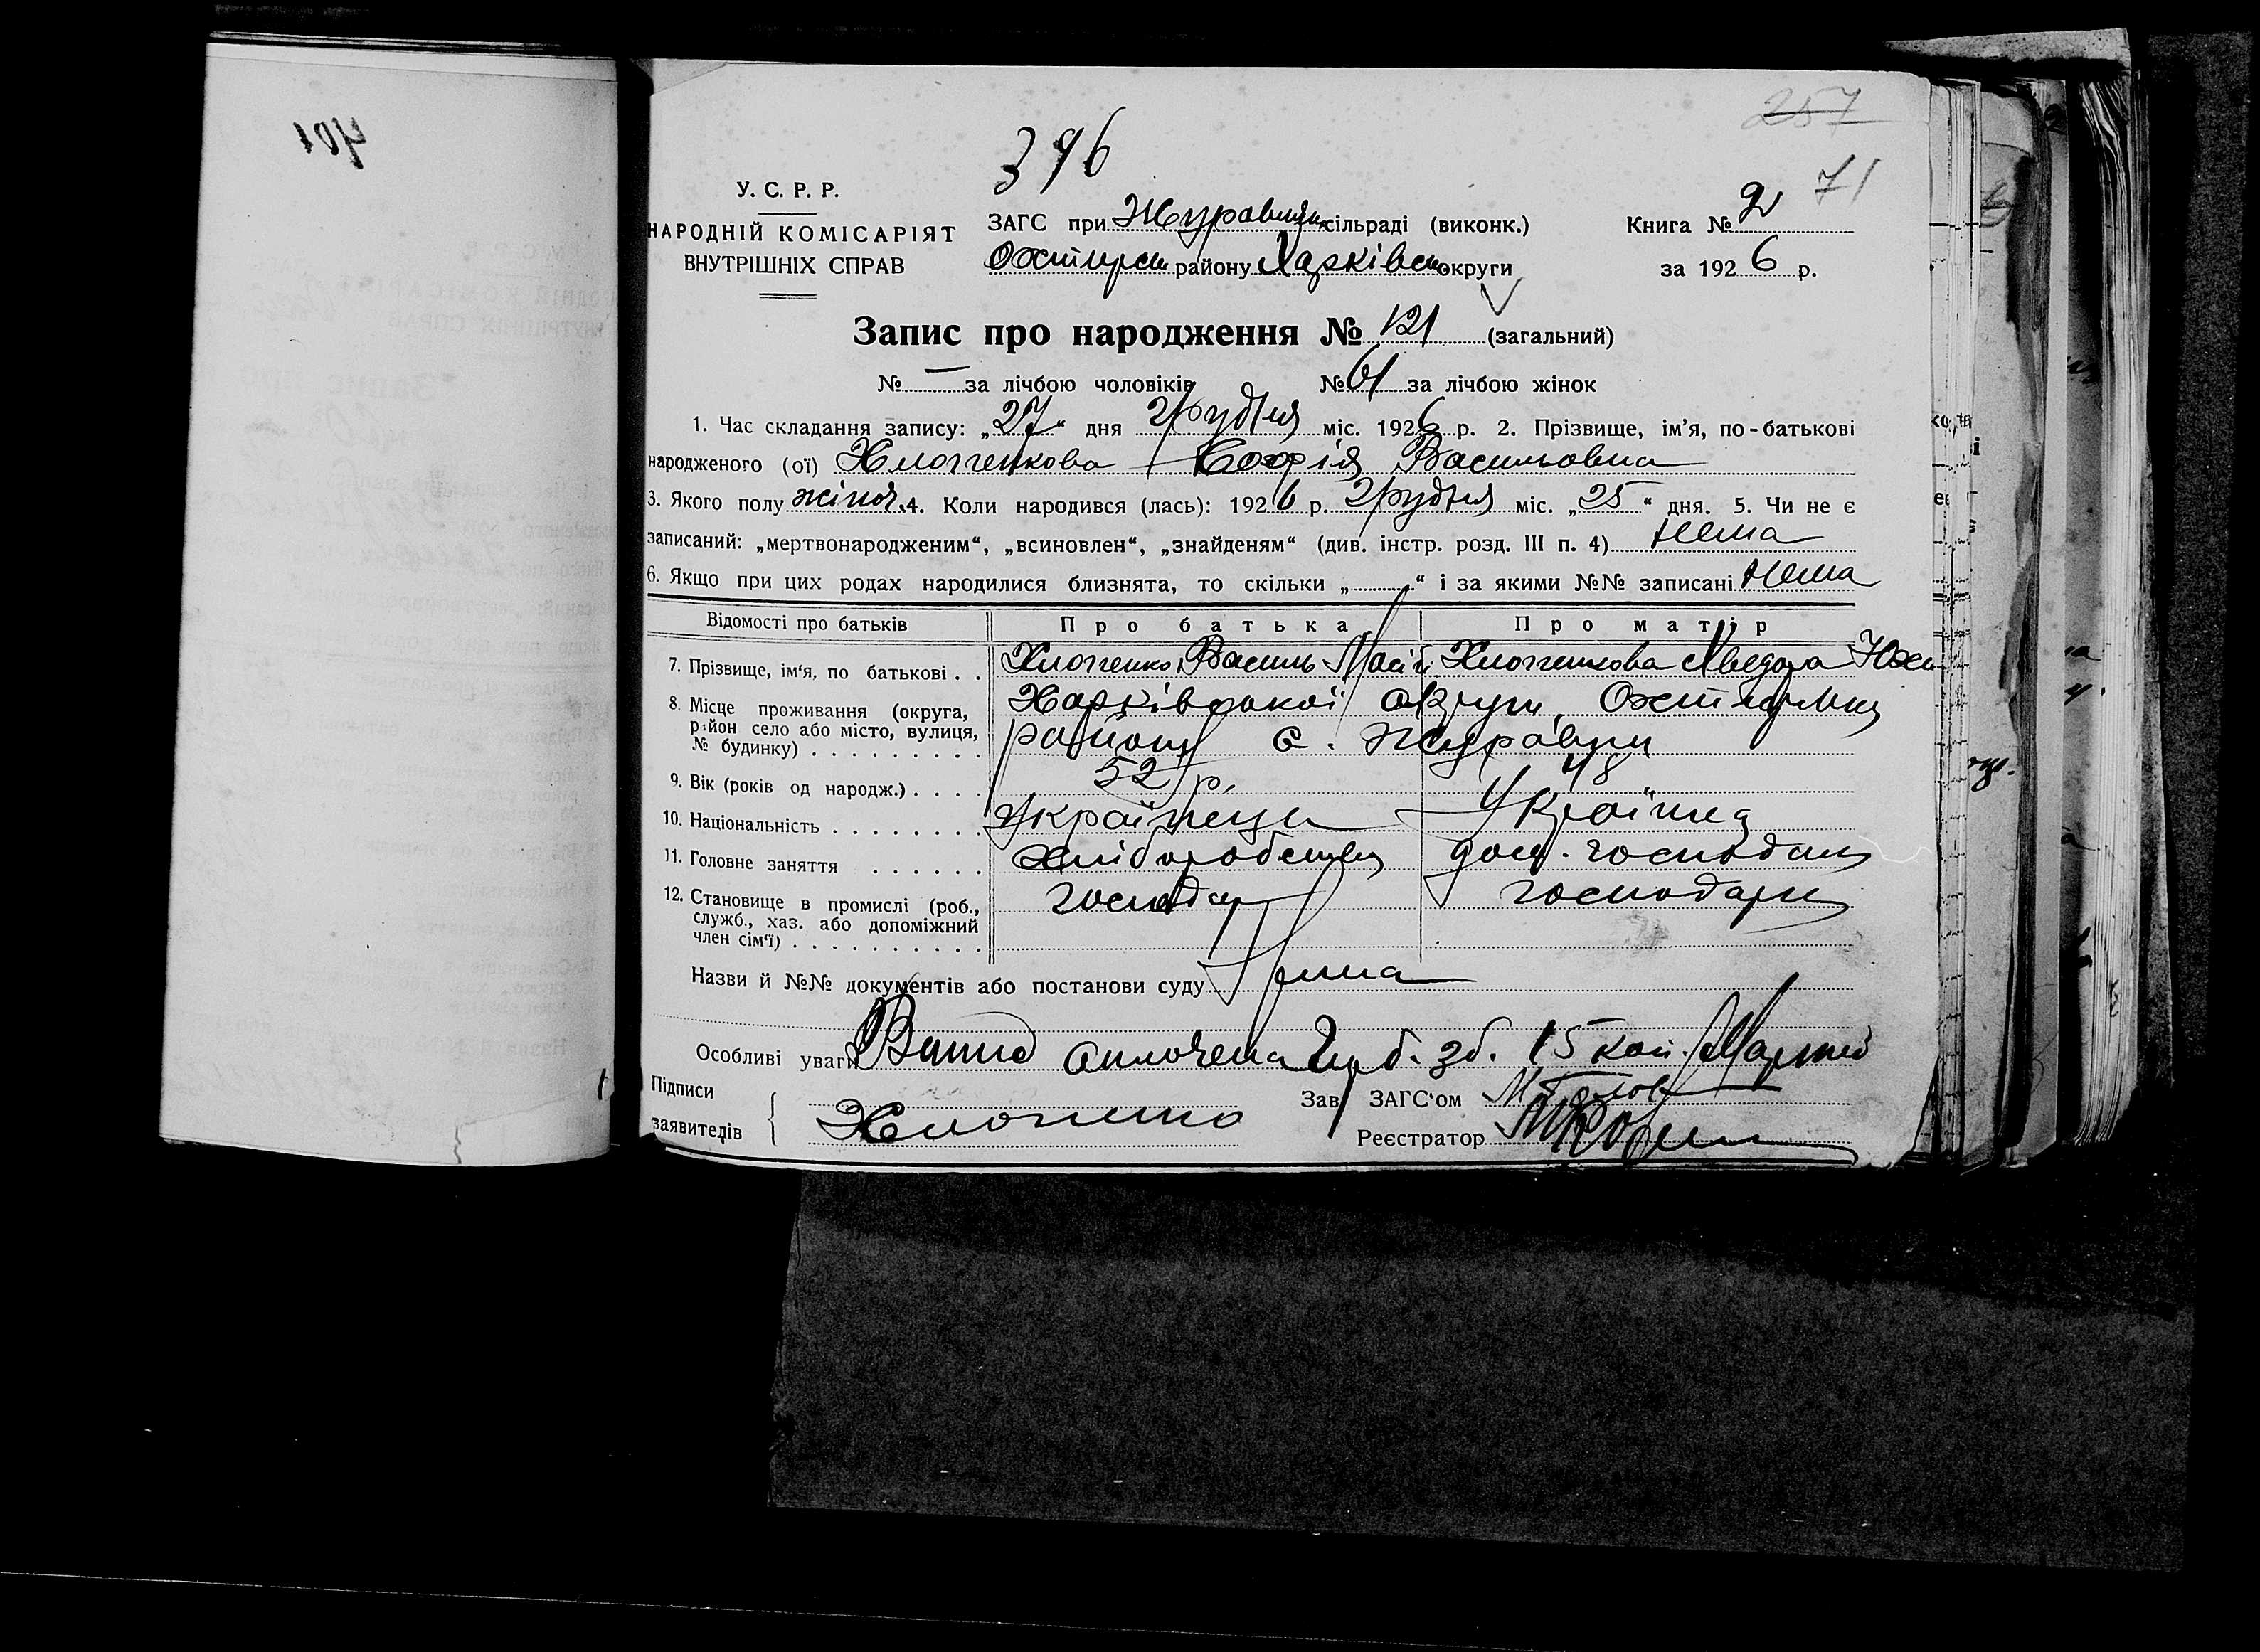 401
257
396
71
У. С. Р. Р.
НАРОДНІЙ КОМІСАРІЯТ
ВНУТРІШНІХ СПРАВ
ЗАГС при Журавнян сільраді (виконк.)
Охтирськ району Харківськ округи
Книга № 2
за 1926 р.
Запис про народження № 121 (загальний)
№ — за лічбою чоловіків № 61 за лічбою жінок
1. Час складання запису: „27“ дня Грудня міс. 1926 р. 2. Прізвище, ім’я, по-батькові
народженого (ої) Хлопенкова Софія Васильовна
3. Якого полу жіноч. 4. Коли народився (лась): 1926 р. Грудня міс. „25“ дня. 5. Чи не є
записаний: „мертвонародженим“, „всиновлен“, „знайденям“ (див. інстр. розд. III п. 4) Нема
6. Якщо при цих родах народилися близнята, то скільки „ “ і за якими №№ записані Нема
Відомості про батьків Про батька Про матір
7. Прізвище, ім’я, по батькові . . Хлопенко Василь Хлопенкова
8. Місце проживання (округа, Харківської округи, Охтирськ
район село або місто, вулиця, району с. Журавни
№ будинку) . . . . . . . . .
9. Вік (років од народж.) . . . . 52 р. 48
10. Національність . . . . . . . . Українець Україінка
11. Головне заняття . . . . . . хліборобство дом. господар
12. Становище в промислі (роб., господар господари
служб., хаз. або допоміжний
член сім’ї) . . . . . . . . . .
Назви й №№ документів або постанови суду Нема
Особливі уваги оплочена зб. 15 коп.
Підписи
заявителів Хлопенко
Зав ЗАГС’ом
Реєстратор